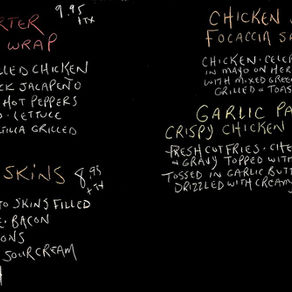 9.95
+TX
RTER
WRAP
LLED CHICKEN
CK JALAPEÑO
HOT PEPPERS
O · LETTUCE
TILLA GRILLED
SKINS 8.95
+TX
TO SKINS FILLED
E · BACON
ONS
SOUR CREAM
CHICKEN
FOCACCIA SA
CHICKEN · CELER
IN MAYO ON HER
WITH MIXED GREEN
GRILLED + TOAS
GARLIC PA
CRISPY CHICKEN
FRESH CUT FRIES · CHE
+ GRAVY TOPPED WITH
TOSSED IN GARLIC BUTT
DRIZZLED WITH CREAMY